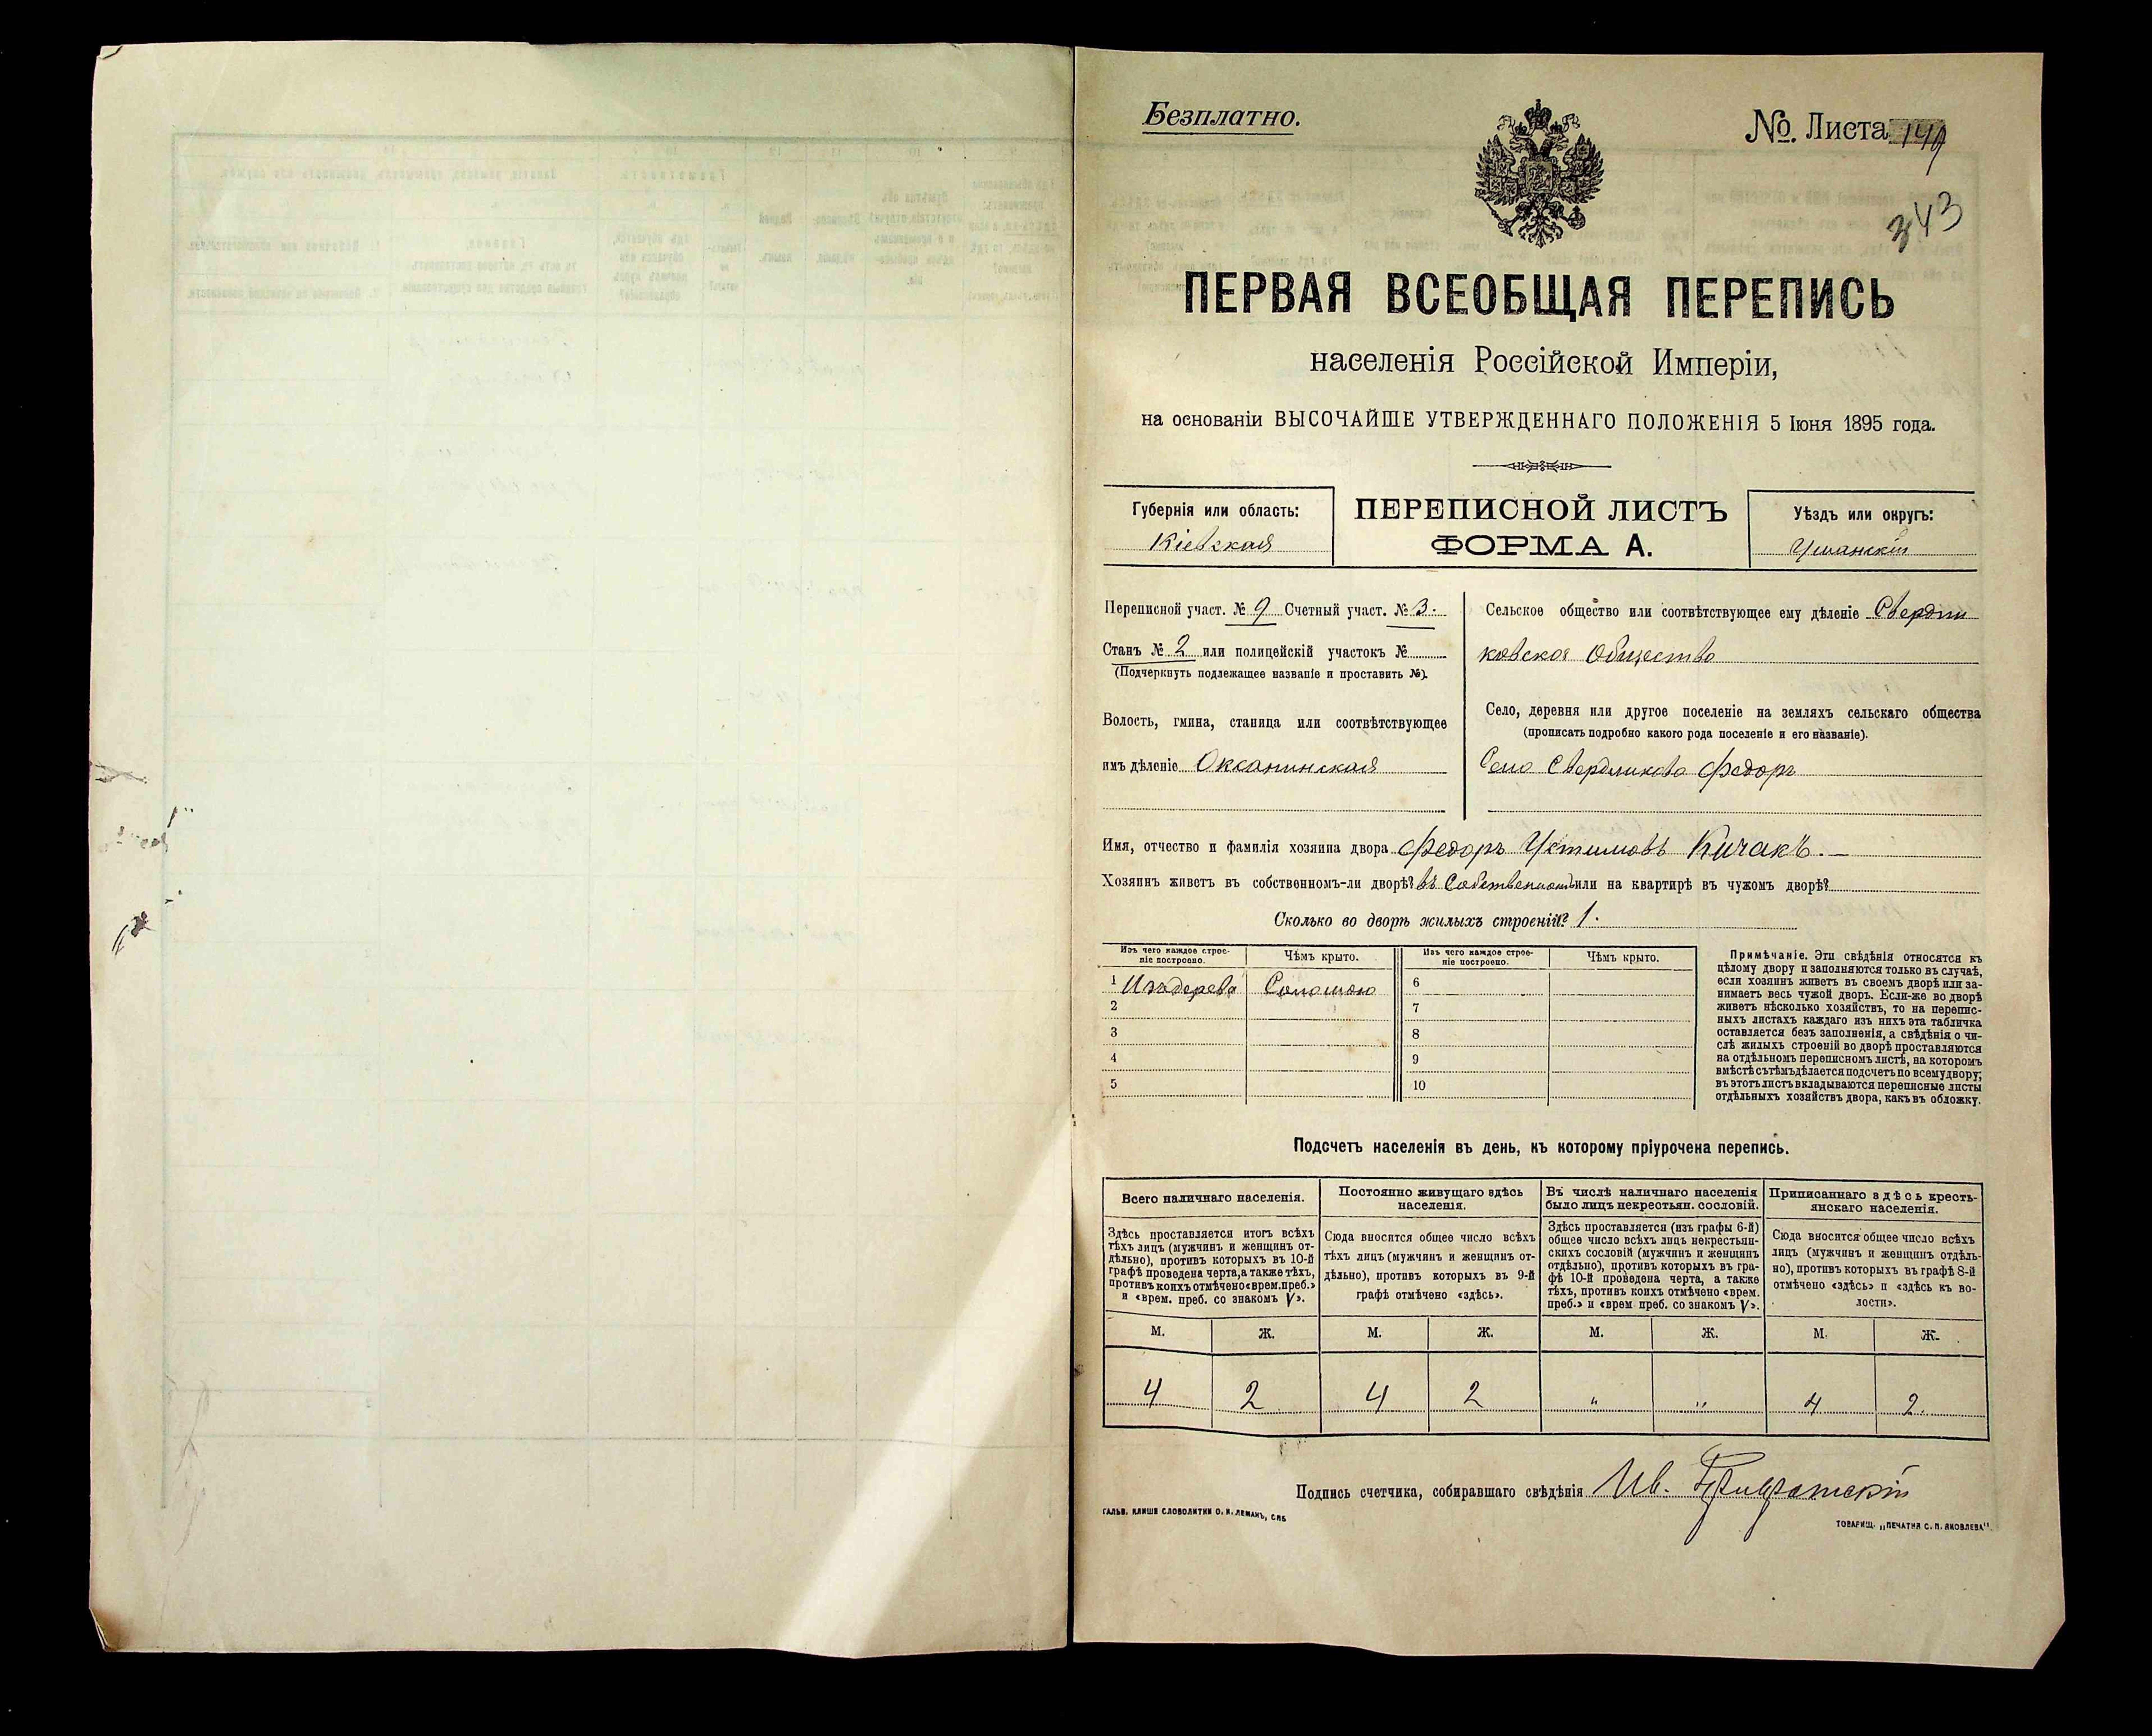 Безплатно.
№ Листа 149
343
ПЕРВАЯ ВСЕОБЩАЯ ПЕРЕПИСЬ
населенія Россійской Имперіи,
на основаніи ВЫСОЧАЙШЕ УТВЕРЖДЕННАГО ПОЛОЖЕНІЯ 5 Іюня 1895 года.
Губернія или область:
Кіевская
ПЕРЕПИСНОЙ ЛИСТЪ
ФОРМА А.
Уѣздъ или округъ:
Уманскій
Переписной участ. № 9 Счетный участ. № 3.
Станъ № 2 или полицейскій участокъ №
(Подчеркнуть подлежащее названіе и проставить №).
Волость, гмина, станица или соотвѣтствующее
имъ дѣленіе Оксанинская
Сельское общество или соотвѣтствующее ему дѣленіе Свердли
ковское Общество
Село, деревня или другое поселеніе на земляхъ сельскаго общества
(прописать подробно какого рода поселеніе и его названіе).
Село Свердликово Федоръ
Имя, отчество и фамилія хозяина двора Федоръ Устимовъ Кичакъ.
Хозяинъ живетъ въ собственномъ-ли дворѣ? въ Собственномъ или на квартирѣ въ чужомъ дворѣ?
Сколько во дворѣ жилыхъ строеній? 1.
Изъ чего каждое строе-
ніе построено.
Чѣмъ крыто.
Изъ чего каждое строе-
ніе построено.
Чѣмъ крыто.
1 Изъ дерева Соломою 6
2 7
3 8
4 9
5 10
Примѣчаніе. Эти свѣдѣнія относятся къ
цѣлому двору и заполняются только въ случаѣ,
если хозяинъ живетъ въ своемъ дворѣ или за-
нимаетъ весь чужой дворъ. Если-же во дворѣ
живетъ нѣсколько хозяйствъ, то на перепис-
ныхъ листахъ каждаго изъ нихъ эта табличка
оставляется безъ заполненія, а свѣдѣнія о чи-
слѣ жилыхъ строеній во дворѣ проставляются
на отдѣльномъ переписномъ листѣ, на которомъ
вмѣстѣ съ тѣмъ дѣлается подсчетъ по всему двору;
въ этотъ листъ вкладываются переписные листы
отдѣльныхъ хозяйствъ двора, какъ въ обложку.
Подсчетъ населенія въ день, къ которому пріурочена перепись.
Всего наличнаго населенія.
Здѣсь проставляется итогъ всѣхъ
тѣхъ лицъ (мужчинъ и женщинъ от-
дѣльно), противъ которыхъ въ 10-й
графѣ проведена черта, а также тѣхъ,
противъ коихъ отмѣчено «врем. преб.»
и «врем. преб. со знакомъ V».
Постоянно живущаго здѣсь
населенія.
Сюда вносится общее число всѣхъ
тѣхъ лицъ (мужчинъ и женщинъ от-
дѣльно), противъ которыхъ въ 9-й
графѣ отмѣчено «здѣсь».
Въ числѣ наличнаго населенія
было лицъ некрестьян. сословій.
Здѣсь проставляется (изъ графы 6-й)
общее число всѣхъ лицъ некрестьян-
скихъ сословій (мужчинъ и женщинъ
отдѣльно), противъ которыхъ въ гра-
фѣ 10-й проведена черта, а также
тѣхъ, противъ коихъ отмѣчено «врем.
преб.» и «врем преб. со знакомъ V».
Приписаннаго здѣсь кресть-
янскаго населенія.
Сюда вносится общее число всѣхъ
лицъ (мужчинъ и женщинъ отдѣль-
но), противъ которыхъ въ графѣ 8-й
отмѣчено «здѣсь» и «здѣсь къ во-
лости».
М. Ж. М. Ж. М. Ж. М. Ж.
4 2 4 2 " " 4 2.
Подпись счетчика, собиравшаго свѣдѣнія Ив.
ГАЛЬВ. КЛИШЕ СЛОВОЛИТНИ О. И. ЛЕМАНЪ, СПБ
ТОВАРИЩ. „ПЕЧАТНЯ С. П. ЯКОВЛЕВА"